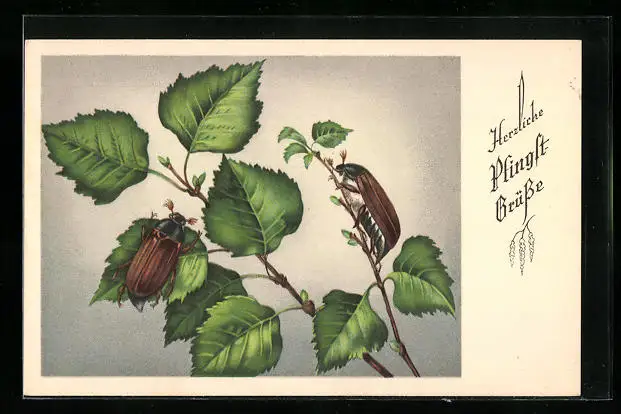 Herzliche
Pfingst-
Grüße